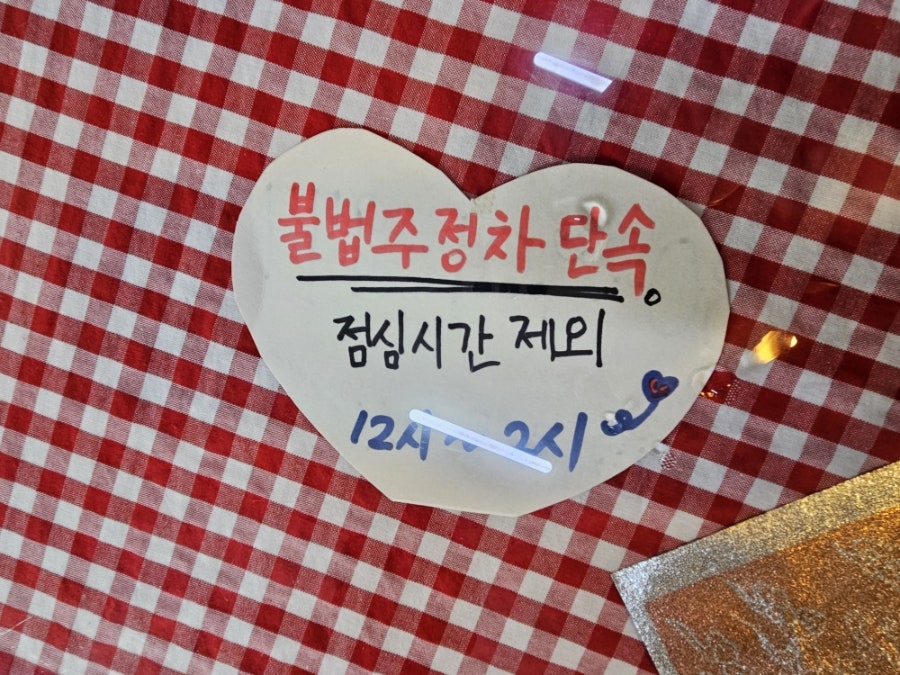 불법주정차 단속。
점심시간 제외
12시 ~ 2시